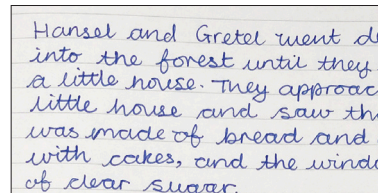 Hansel and Gretel went
into the forest until they
a little house. They
little house and saw
was made of bread and
with cakes, and the
of clear sugar.